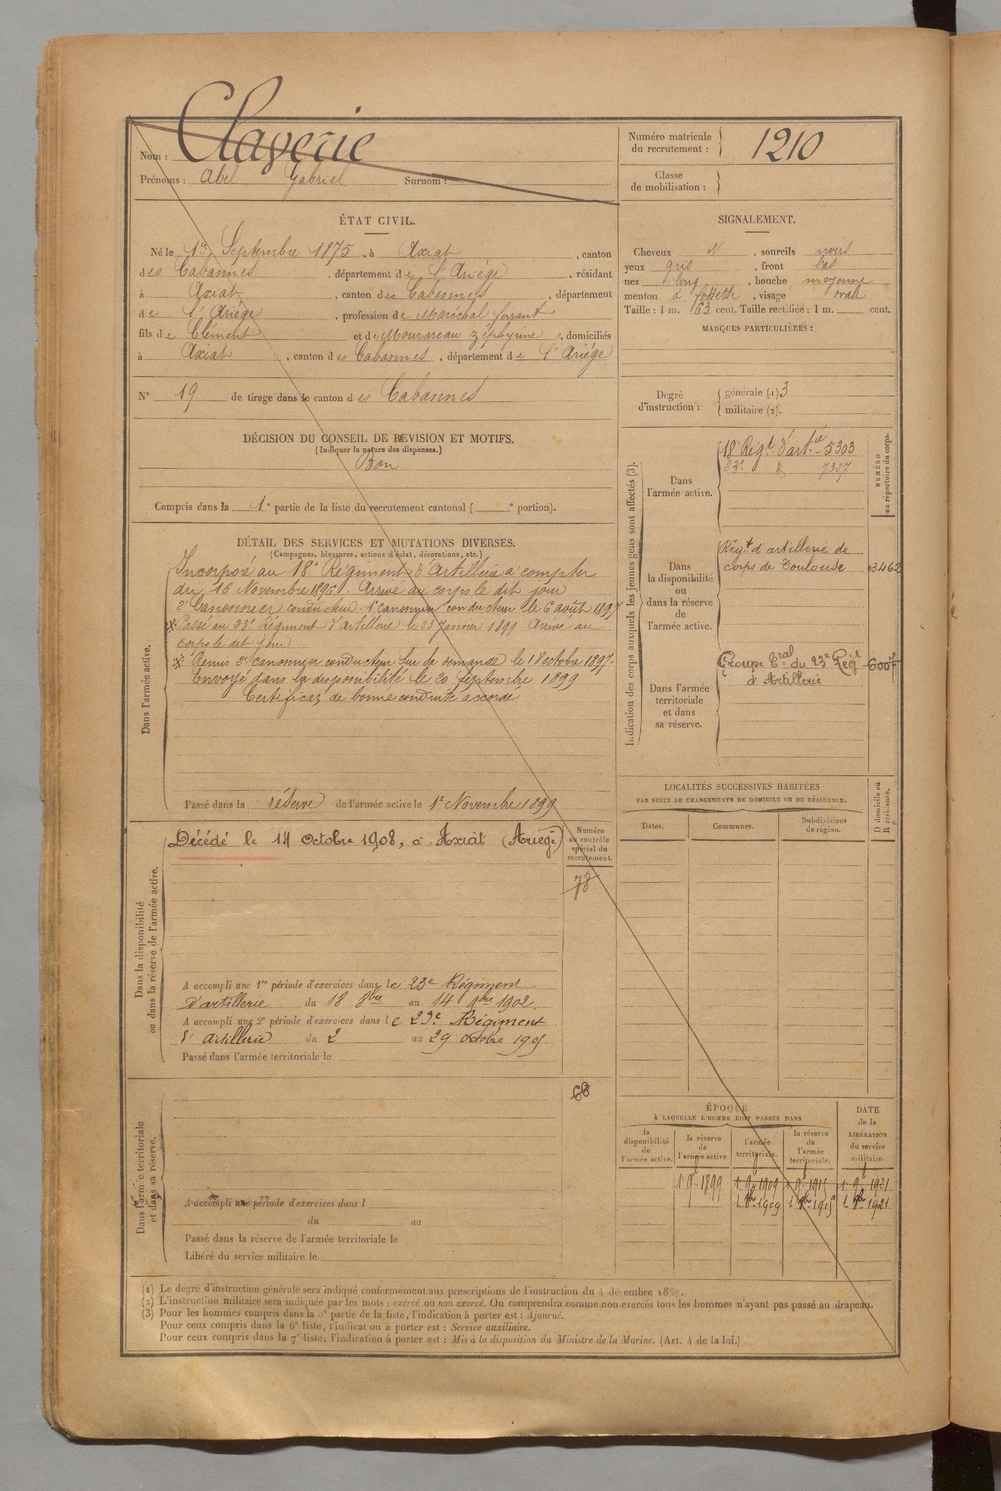 Nom : Claverie
Prénoms : Abel Gabriel Surnom :
Numéro matricule du recrutement : 1210
Classe de mobilisation :
ÉTAT CIVIL.
Né le 1er Septembre 1875, à Axiat, canton
des Cabannes, département de l'Ariège, résidant
à Axiat, canton des Cabannes, département
de l'Ariège, profession de Maréchal ferrant
fils de Clément et de Zéphyrine, domiciliés
à Axiat, canton des Cabannes, département de l'Ariège
N° 19 de tirage dans le canton des Cabannes
DÉCISION DU CONSEIL DE RÉVISION ET MOTIFS.
(Indiquer la nature des dispenses.)
Bon
Compris dans la 1e partie de la liste du recrutement cantonal ( e portion).
DÉTAIL DES SERVICES ET MUTATIONS DIVERSES.
(Campagnes, blessures, actions d'éclat, décorations, etc.)
Dans l'armée active.
Incorporé au 18e Régiment d'Artillerie à compter
du 16 Novembre 1896. Arrivé au corps le dit jour
2e canonnier conducteur. 1er canonnier conducteur le 6 août 1897
Passé au 23e Régiment d'artillerie le 23 Janvier 1899 Arrivé au
corps le dit jour
Remis 2e canonnier conducteur sur sa demande le 18 octobre 1897.
Envoyé dans la disponibilité le 20 Septembre 1899
Certificat de bonne conduite accordé
Passé dans la réserve de l'armée active le 1er Novembre 1899
Dans la disponibilité ou dans la réserve de l'armée active.
Décédé le 14 Octobre 1908, à Axiat (Ariège)
Numéro au contrôle spécial du recrutement.
78
A accompli une 1re période d'exercices dans le 23e Régiment
d'artillerie du 18 8bre au 14 9bre 1902.
A accompli une 2e période d'exercices dans le 23e Régiment
d'artillerie du 2 au 29 octobre 1905
Passé dans l'armée territoriale le
Dans l'armée territoriale et dans sa réserve.
68
A accompli une période d'exercices dans l
du au
Passé dans la réserve de l'armée territoriale le
Libéré du service militaire le
SIGNALEMENT.
Cheveux N, sourcils noirs
yeux gris, front bas
nez long, bouche moyenne
menton à fossette, visage oval
Taille : 1 m. 63 cent. Taille rectifiée : 1 m. cent.
MARQUES PARTICULIÈRES :
Degré d'instruction : générale (1) 3
militaire (2).
Indication des corps auxquels les jeunes gens sont affectés (3).
NUMÉRO au répertoire du corps.
Dans l'armée active.
18e Régt d'art.ie 5303
23e " 7327
Dans la disponibilité ou dans la réserve de l'armée active.
Régt d'artillerie de
corps de Toulouse 3462
Dans l'armée territoriale et dans sa réserve.
Groupe tral du 23e Régt 6007
d'Artillerie
LOCALITÉS SUCCESSIVES HABITÉES
PAR SUITE DE CHANGEMENTS DE DOMICILE OU DE RÉSIDENCE.
Dates. Communes. Subdivisions de région. D domicile ou R résidence.
ÉPOQUE
À LAQUELLE L'HOMME DOIT PASSER DANS
DATE de la LIBÉRATION du service militaire.
la disponibilité de l'armée active. la réserve de l'armée active. l'armée territoriale. la réserve de l'armée territoriale.
1 9bre 1899 1 9 1909 1 9 1915 1 9 1921
1 8bre 1909 1 8bre 1915 1 8bre 1921
(1) Le degré d'instruction générale sera indiqué conformément aux prescriptions de l'instruction du 4 décembre 1889.
(2) L'instruction militaire sera indiquée par les mots : exercé ou non exercé. On comprendra comme non exercés tous les hommes n'ayant pas passé au drapeau.
(3) Pour les hommes compris dans la 5e partie de la liste, l'indication à porter est : Ajourné.
Pour ceux compris dans la 6e liste, l'indication à porter est : Service auxiliaire.
Pour ceux compris dans la 7e liste, l'indication à porter est : Mis à la disposition du Ministre de la Marine. (Art. 4 de la loi.)